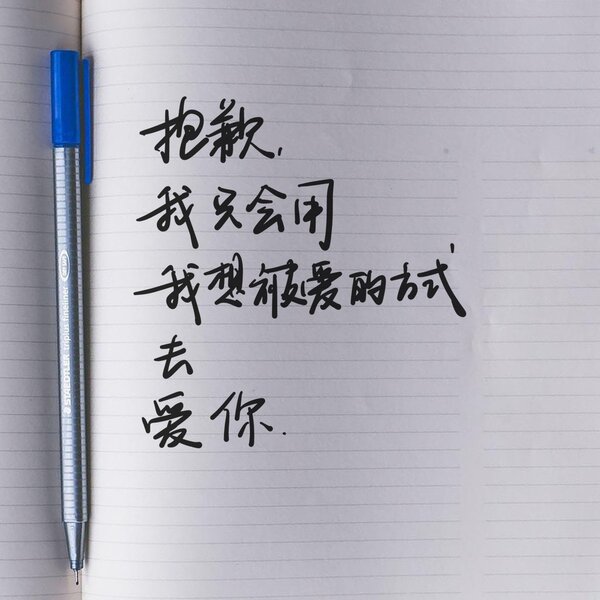 抱歉,
我只会用
我想被爱的方式
去
爱你.
STAEDTLER triplus fineliner